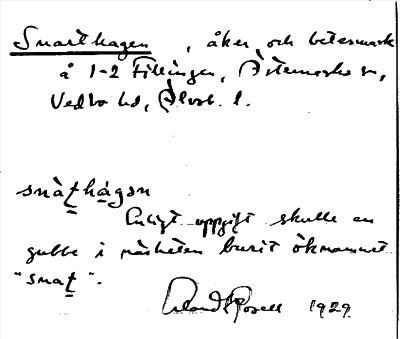 Snarthagen, åker och betesmark
å 1-2 Fillingen, Ör
Vedbo hd, Älvsb. l.
snàt̲hágən
Enligt uppgift skulle en
gubbe i närheten burit öknamnet
"snat̲".
Rosell 1929